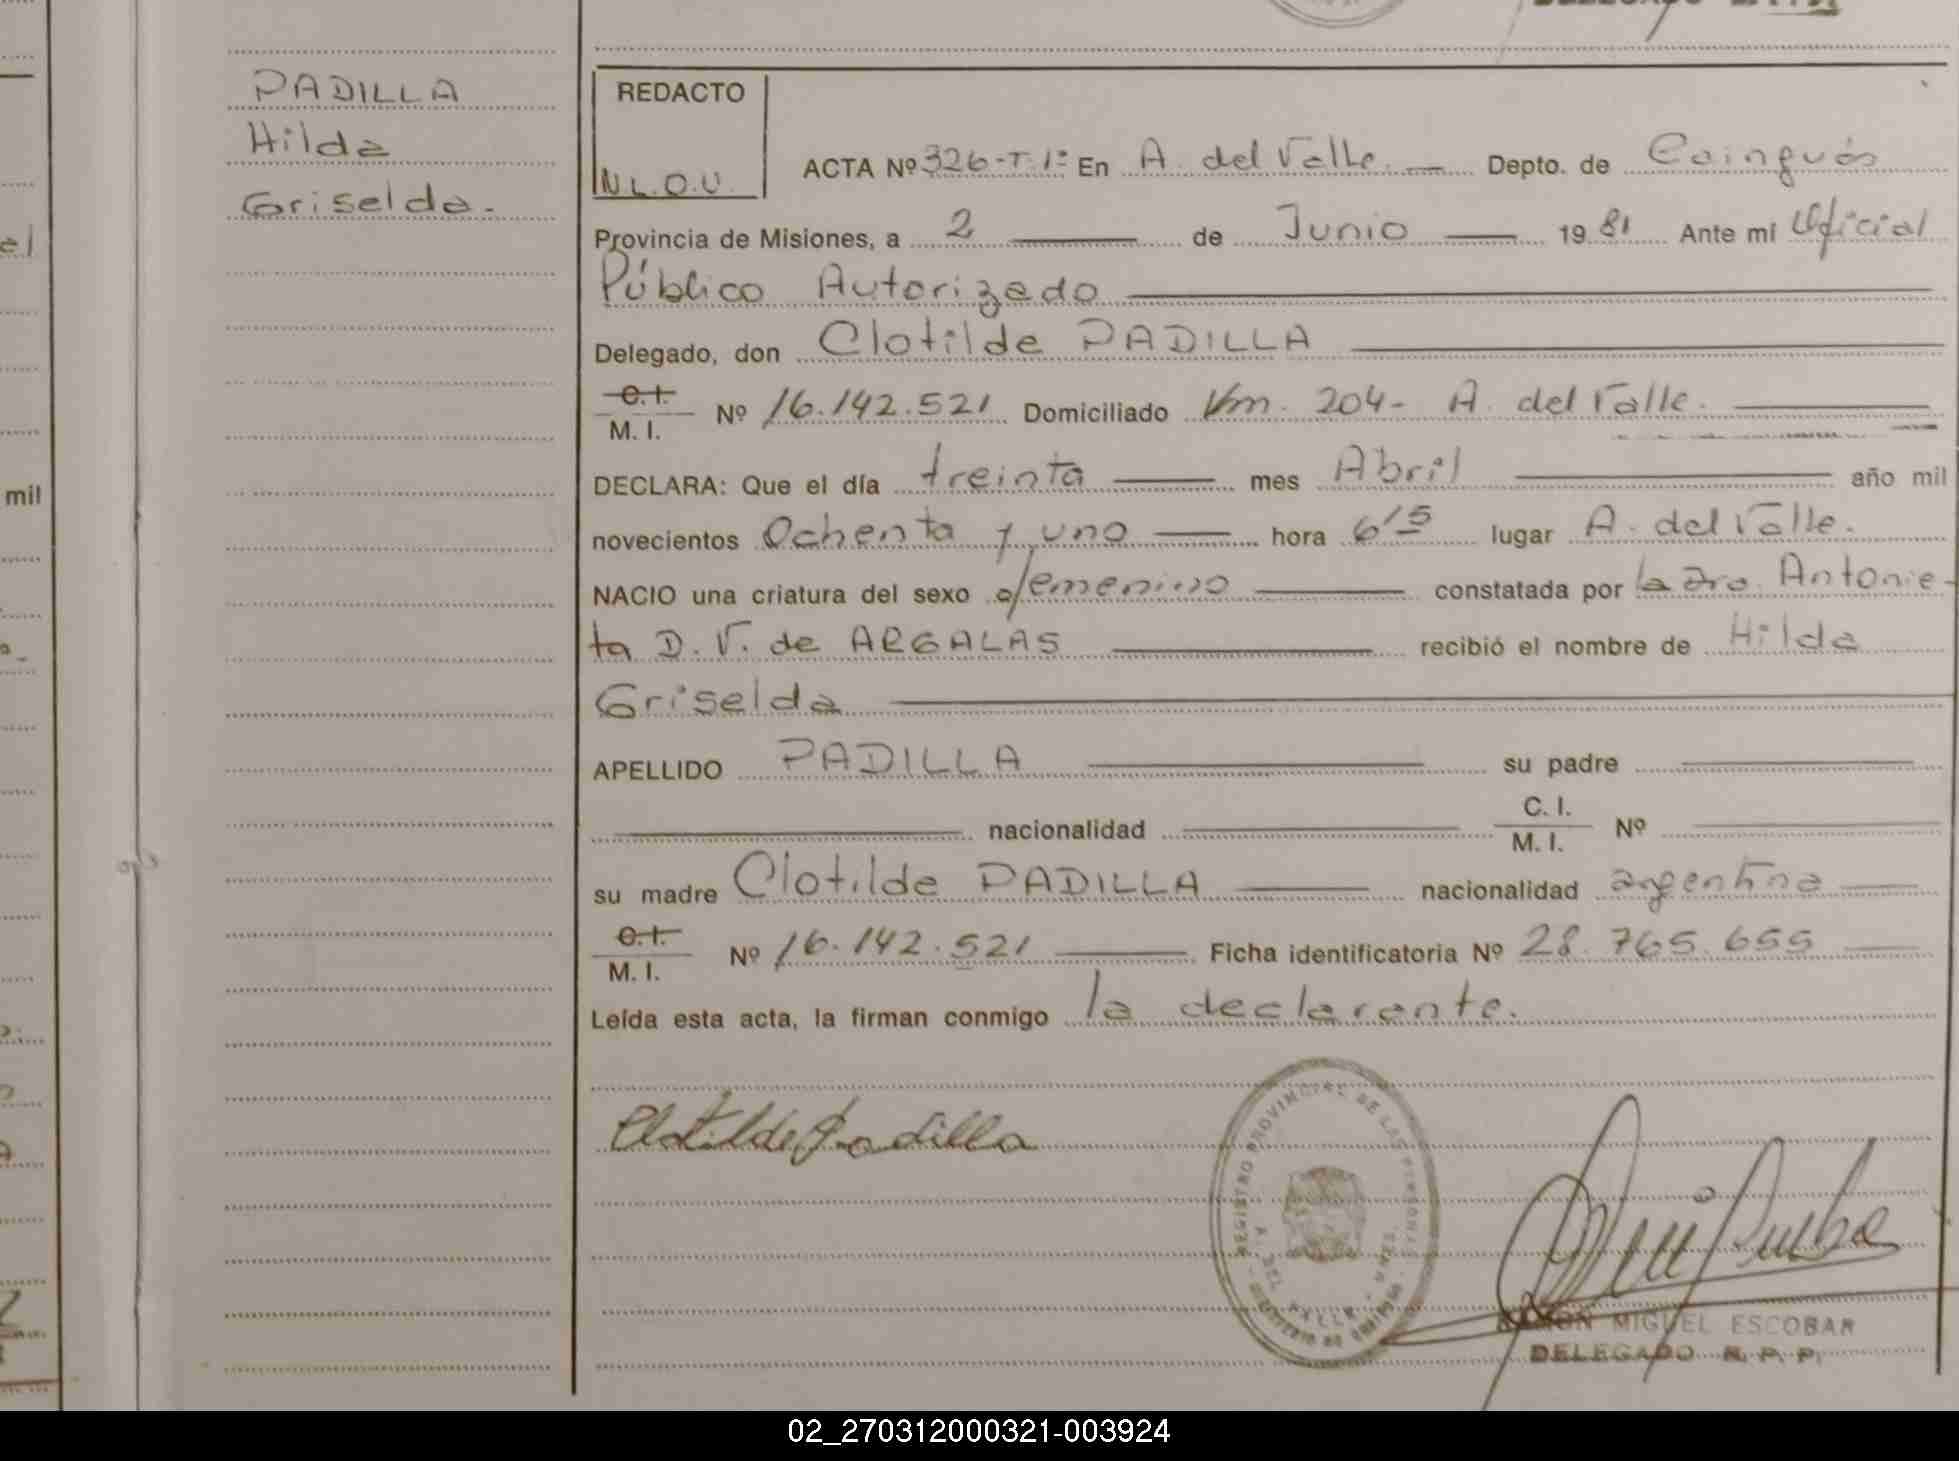 PADILLA
Hilda
Griselda.
REDACTO
N.L.O.V.
ACTA Nº 326-T.1º En A. del Valle. Depto. de Cainguás
Provincia de Misiones, a 2 de Junio 1981 Ante mi Oficial
Público Autorizado
Delegado, don Clotilde PADILLA
C.I.
M. I. Nº 16.142.521 Domiciliado Km. 204- A. del Valle.
DECLARA: Que el día treinta mes Abril año mil
novecientos Ochenta y uno hora 6'15 lugar A. del Valle.
NACIO una criatura del sexo femenino constatada por la Dra. Antonie-
ta D. V. de ARGALAS recibió el nombre de Hilda
Griselda
APELLIDO PADILLA su padre
nacionalidad C. I.
M. I. Nº
su madre Clotilde PADILLA nacionalidad argentina
C.I.
M. I. Nº 16.142.521 Ficha identificatoria Nº 28.765.655
Leída esta acta, la firman conmigo la declarante.
Clotilde Padilla
REGISTRO PROVINCIAL DE LAS PERSONAS
A. DEL VALLE
RAMON MIGUEL ESCOBAR
DELEGADO R. P. P.
mil
02_270312000321-003924